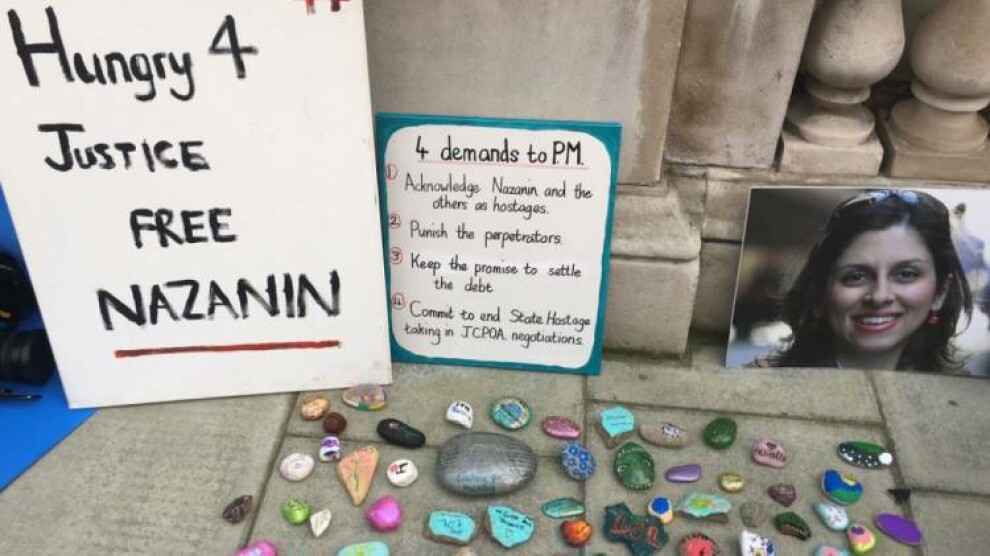 Hungry 4
JUSTICE
FREE
NAZANIN
4 demands to PM.
1 Acknowledge Nazanin and the
others as hostages.
2 Punish the perpetrators.
3 Keep the promise to settle
the debt
4 Commit to end State Hostage
taking in JCPOA negotiations.